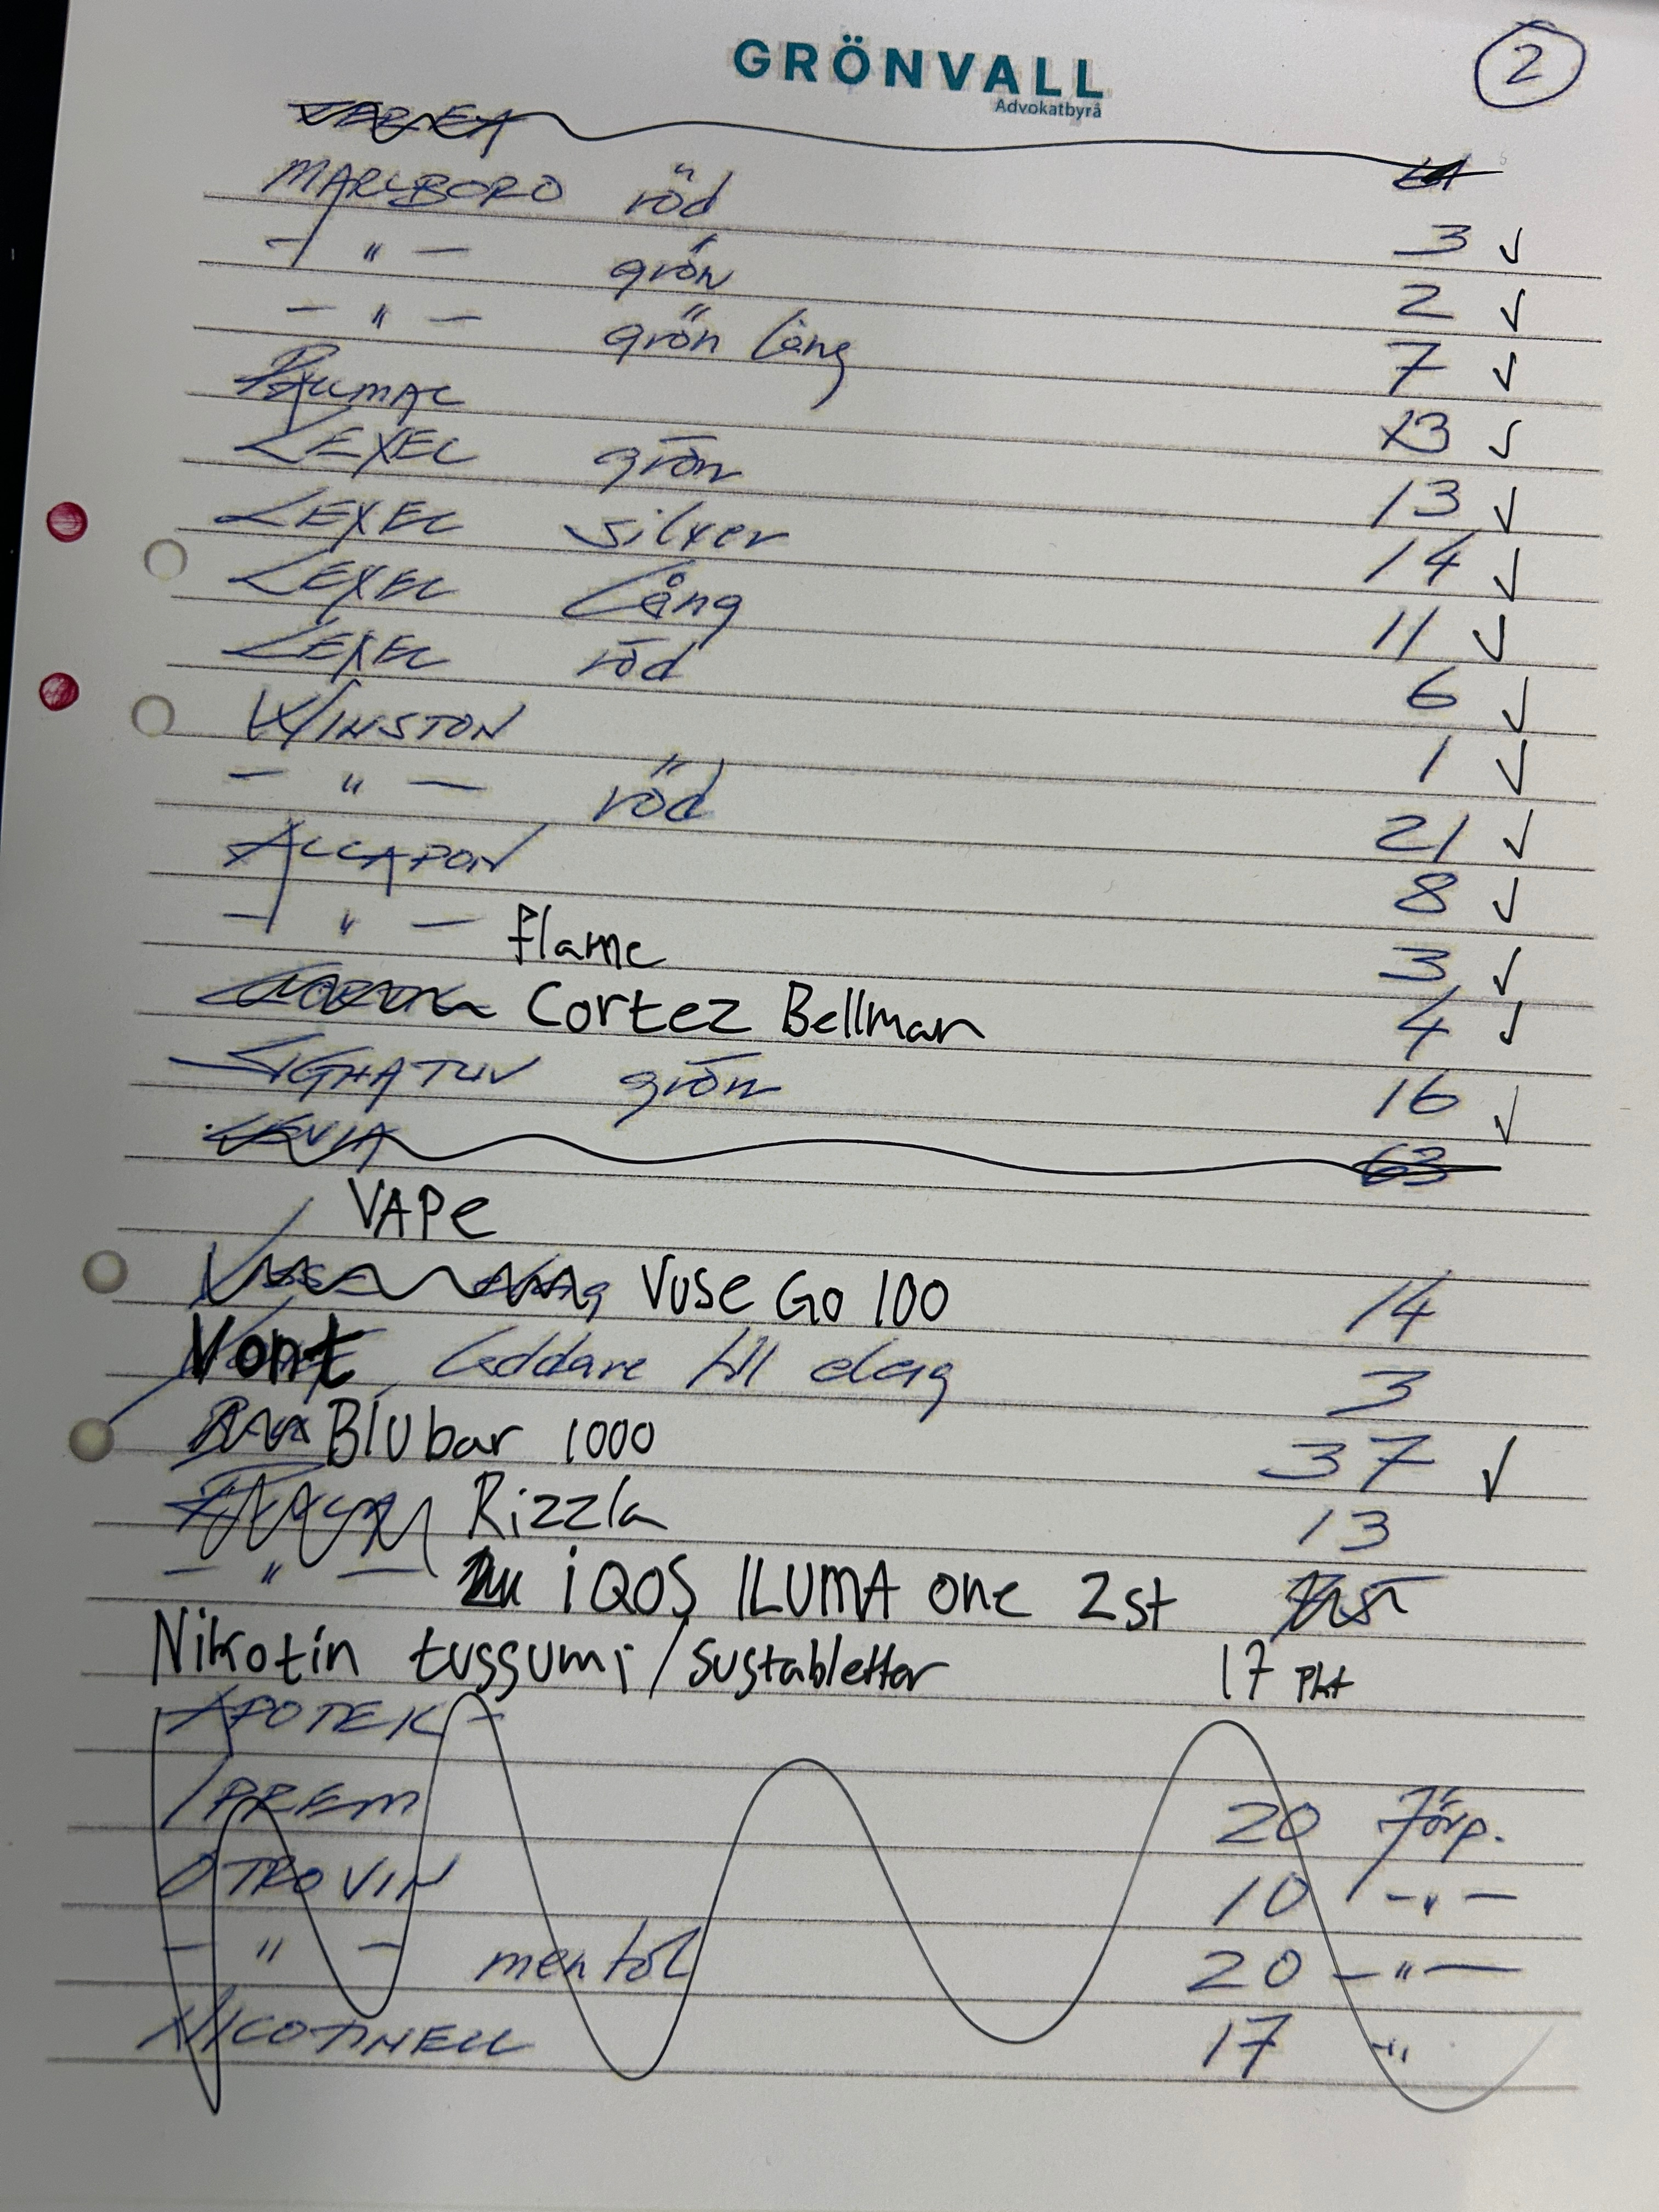 GRÖNVALL
Advokatbyrå
2
MARLBORO röd 3 ✓
- " - grön 2 ✓
- " - grön lång 7 ✓
PALLMAL 13 ✓
LEXEL grön 13 ✓
LEXEL silver 14 ✓
LEXEL Lång 11 ✓
LEXEL röd 6 ✓
WINSTON 1 ✓
- " - röd 21 ✓
ALLAPON 8 ✓
- " - flame 3 ✓
Cortez Bellman 4 ✓
SIGNATUV grön 16 ✓
LEVIA 63
VAPe
Vuse Go 100 14
Vont Laddare till elcig 3
Blu bar 1000 37 ✓
Rizzla 13
- " - iQOS ILUMA one 2st
Nikotin tussumi/sustabletter 17 Pkt
APOTEK -
IPREM 20 Förp.
OTROVIN 10 - " -
- " - mentol 20 - " -
NICOTINELL 17 - " -